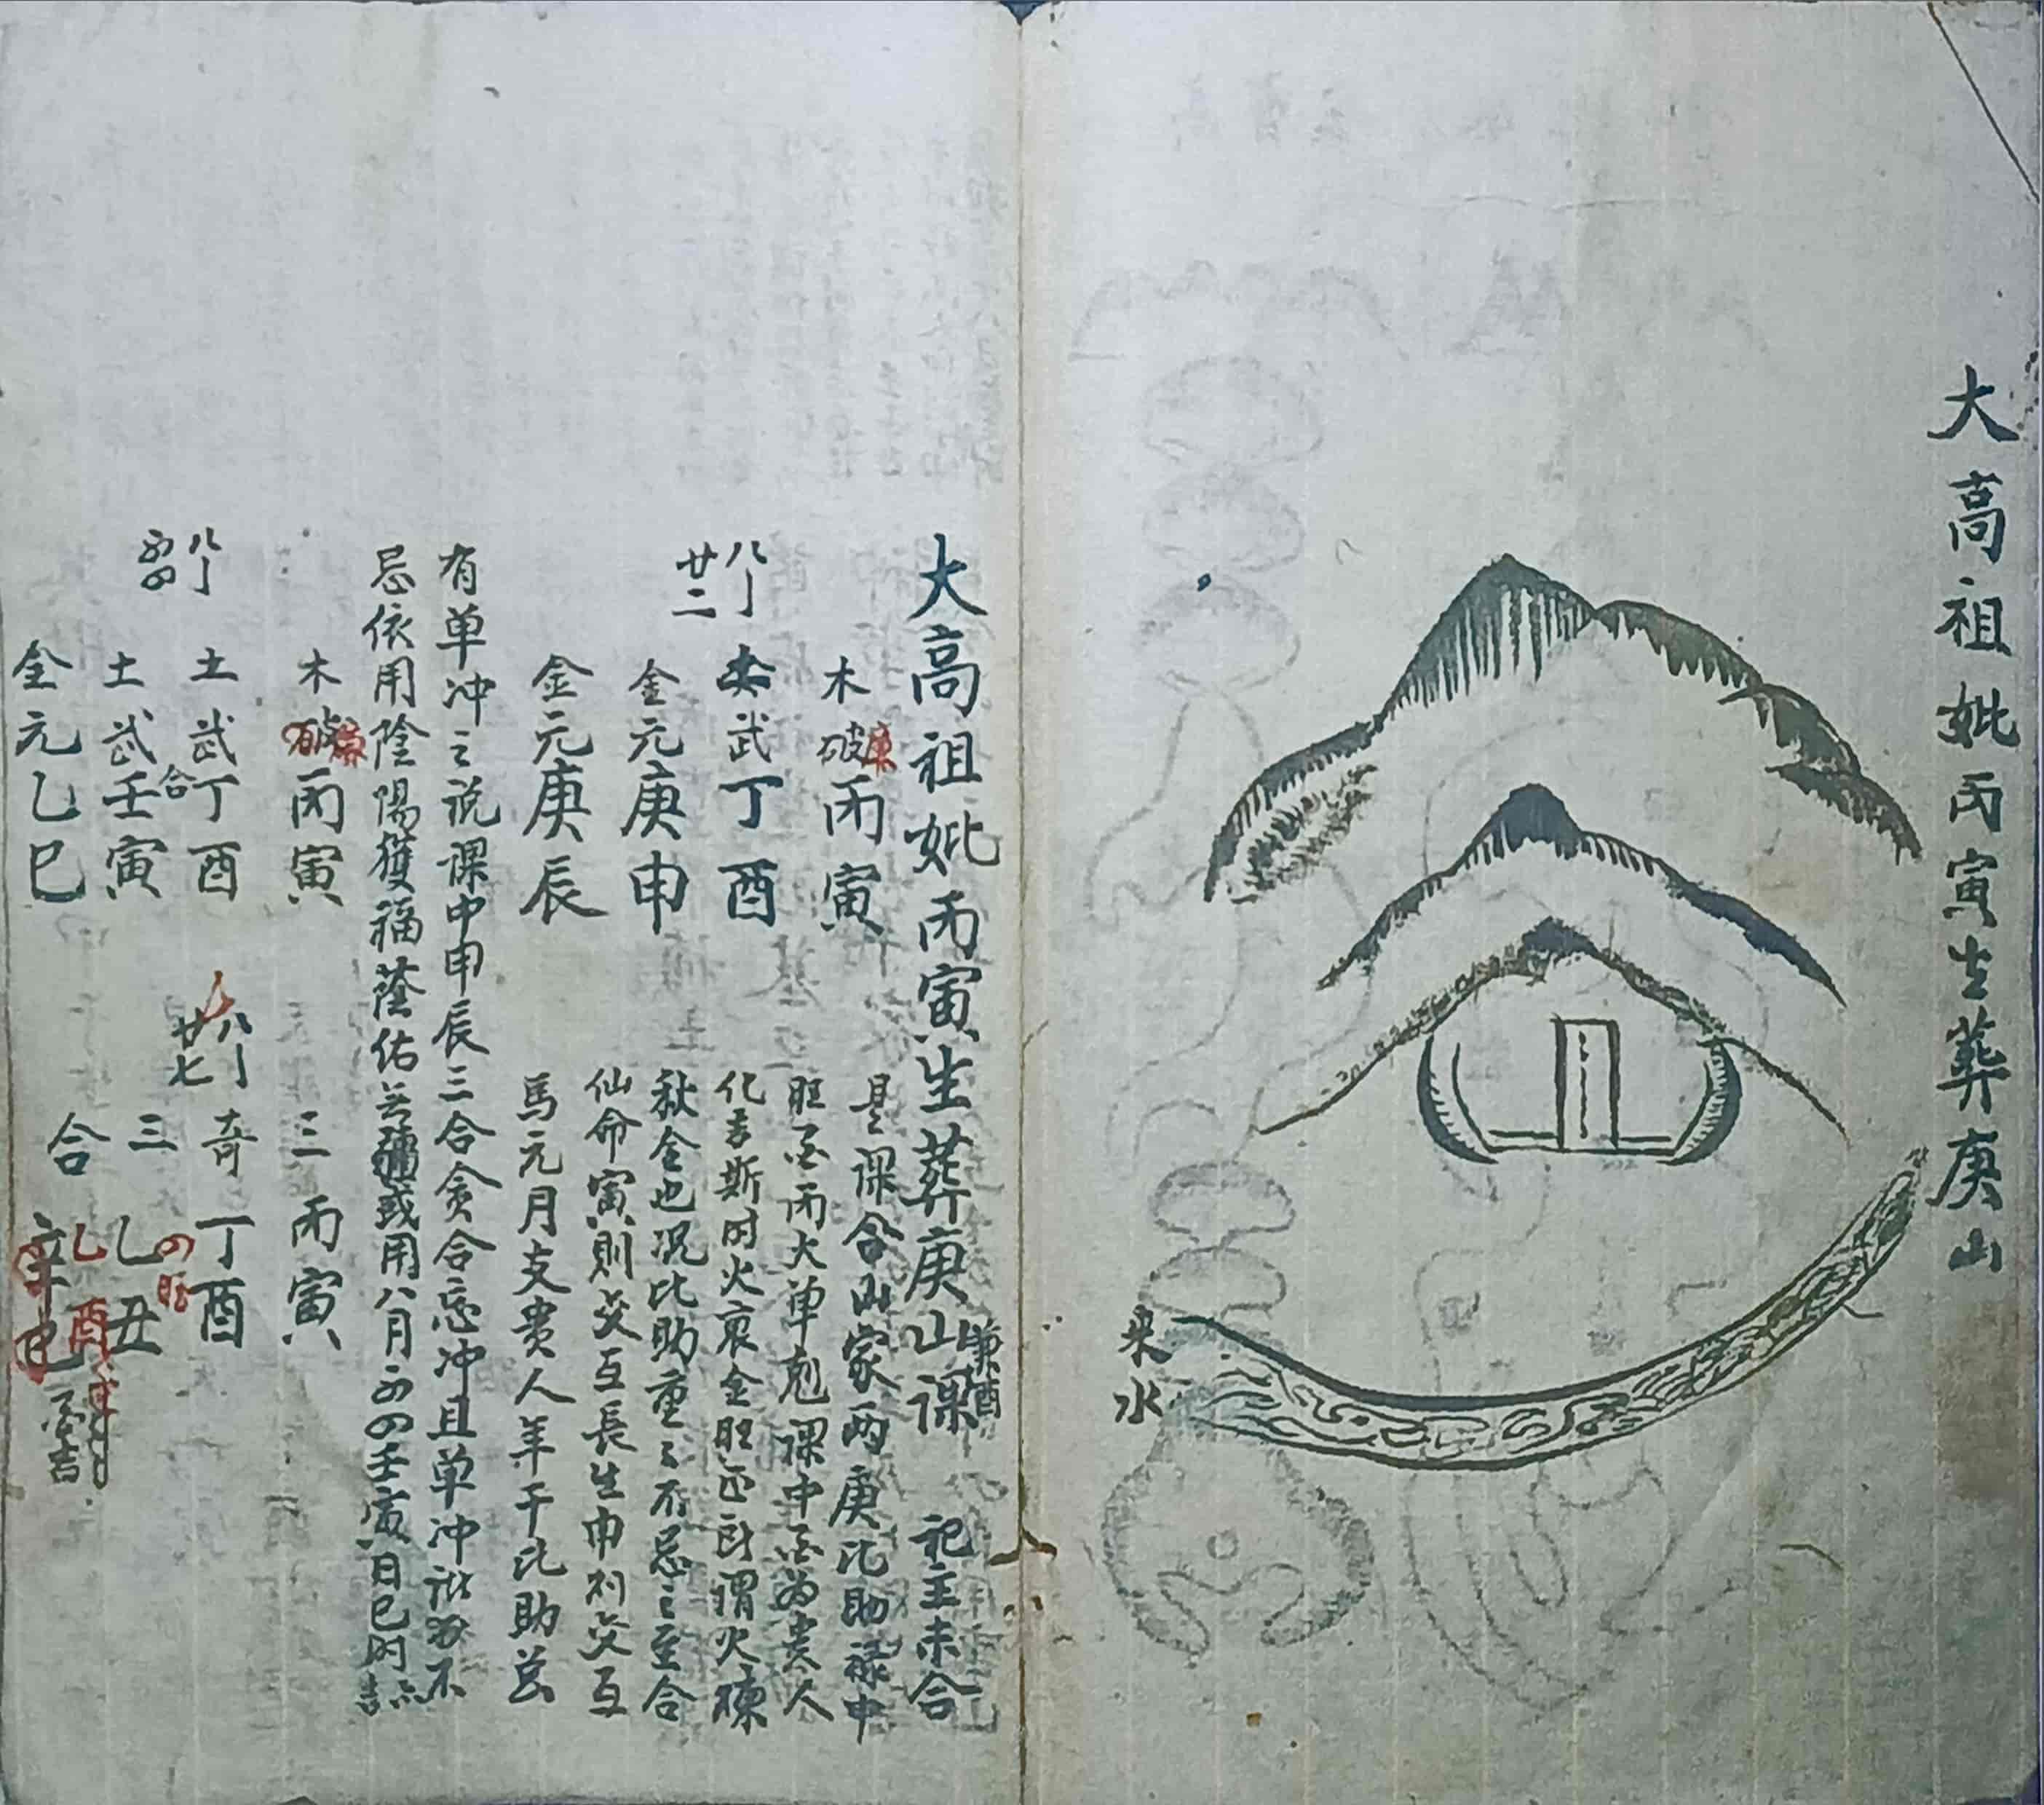 大高祖妣丙寅生葬庚山
来水
大高祖妣丙寅生葬庚山兼酉課 祀主未合
木破廉丙寅
八月廿二
武丁酉
金元庚申
金元庚辰
是課合山家两庚比助禄中
旺酉丙火單剋課中酉為貴人
化吉斯时火衰金旺正所謂火煉
秋金也况比助重之不忌之至合
仙命寅則交互長生申刑交互
馬元月支貴人年干比助并
有单冲之説課中申辰三合貪合忘冲且单冲
忌依用陰陽獲福蔭佑
或用八月初四壬寅日巳时
木破廉丙寅
八月初四
土武丁酉
合
土武壬寅
金元乙巳
三丙寅
八月廿七
奇丁酉
三乙丑
合辛巳
乙酉